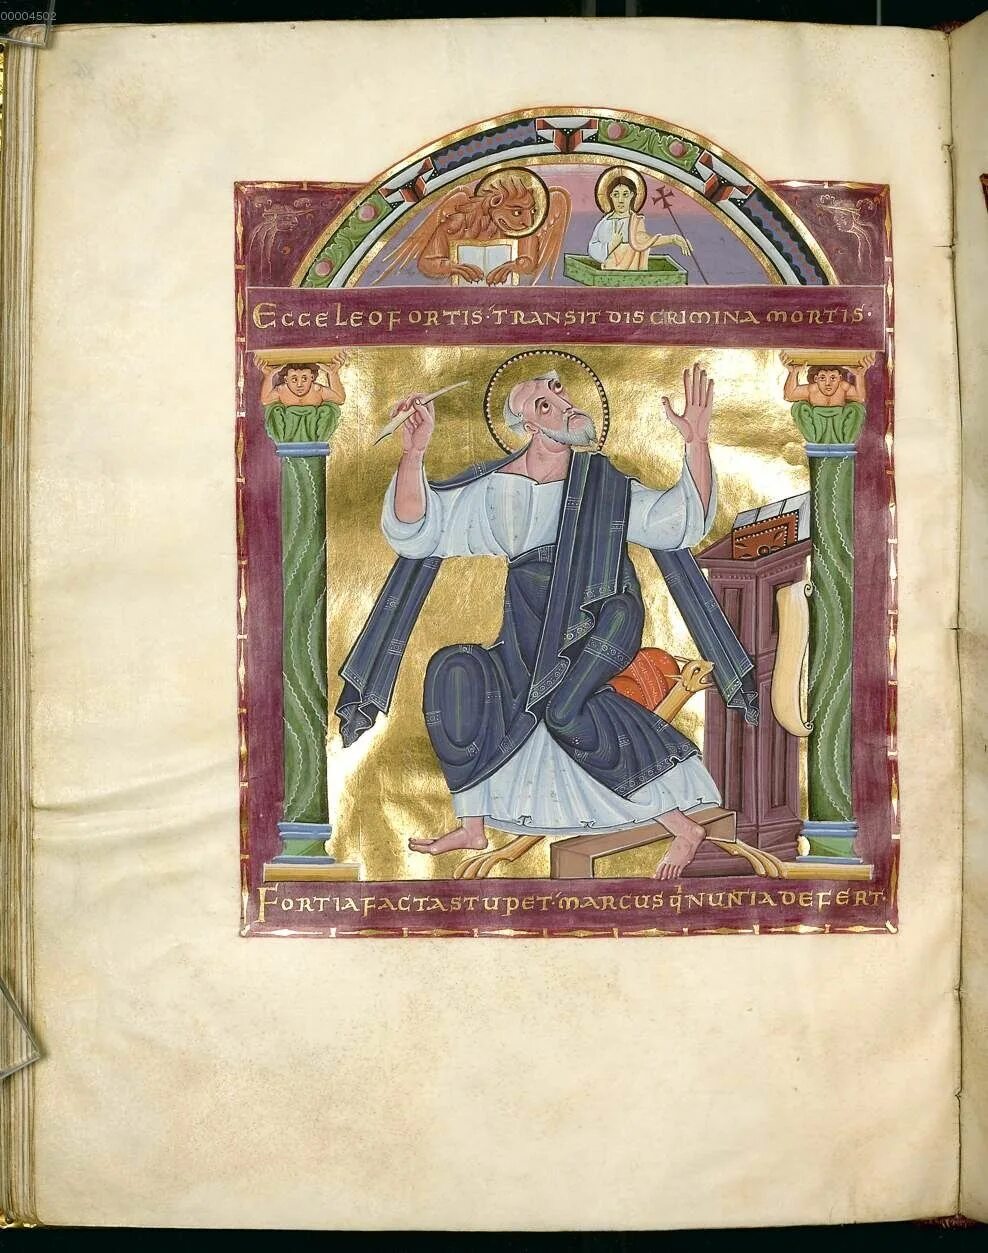 00004502
ECCE LEO FORTIS · TRANSIT DISCRIMINA MORTIS ·
FORTIA FACTA STUPET · MARCUS q̇ NUNTIA DEFERT ·